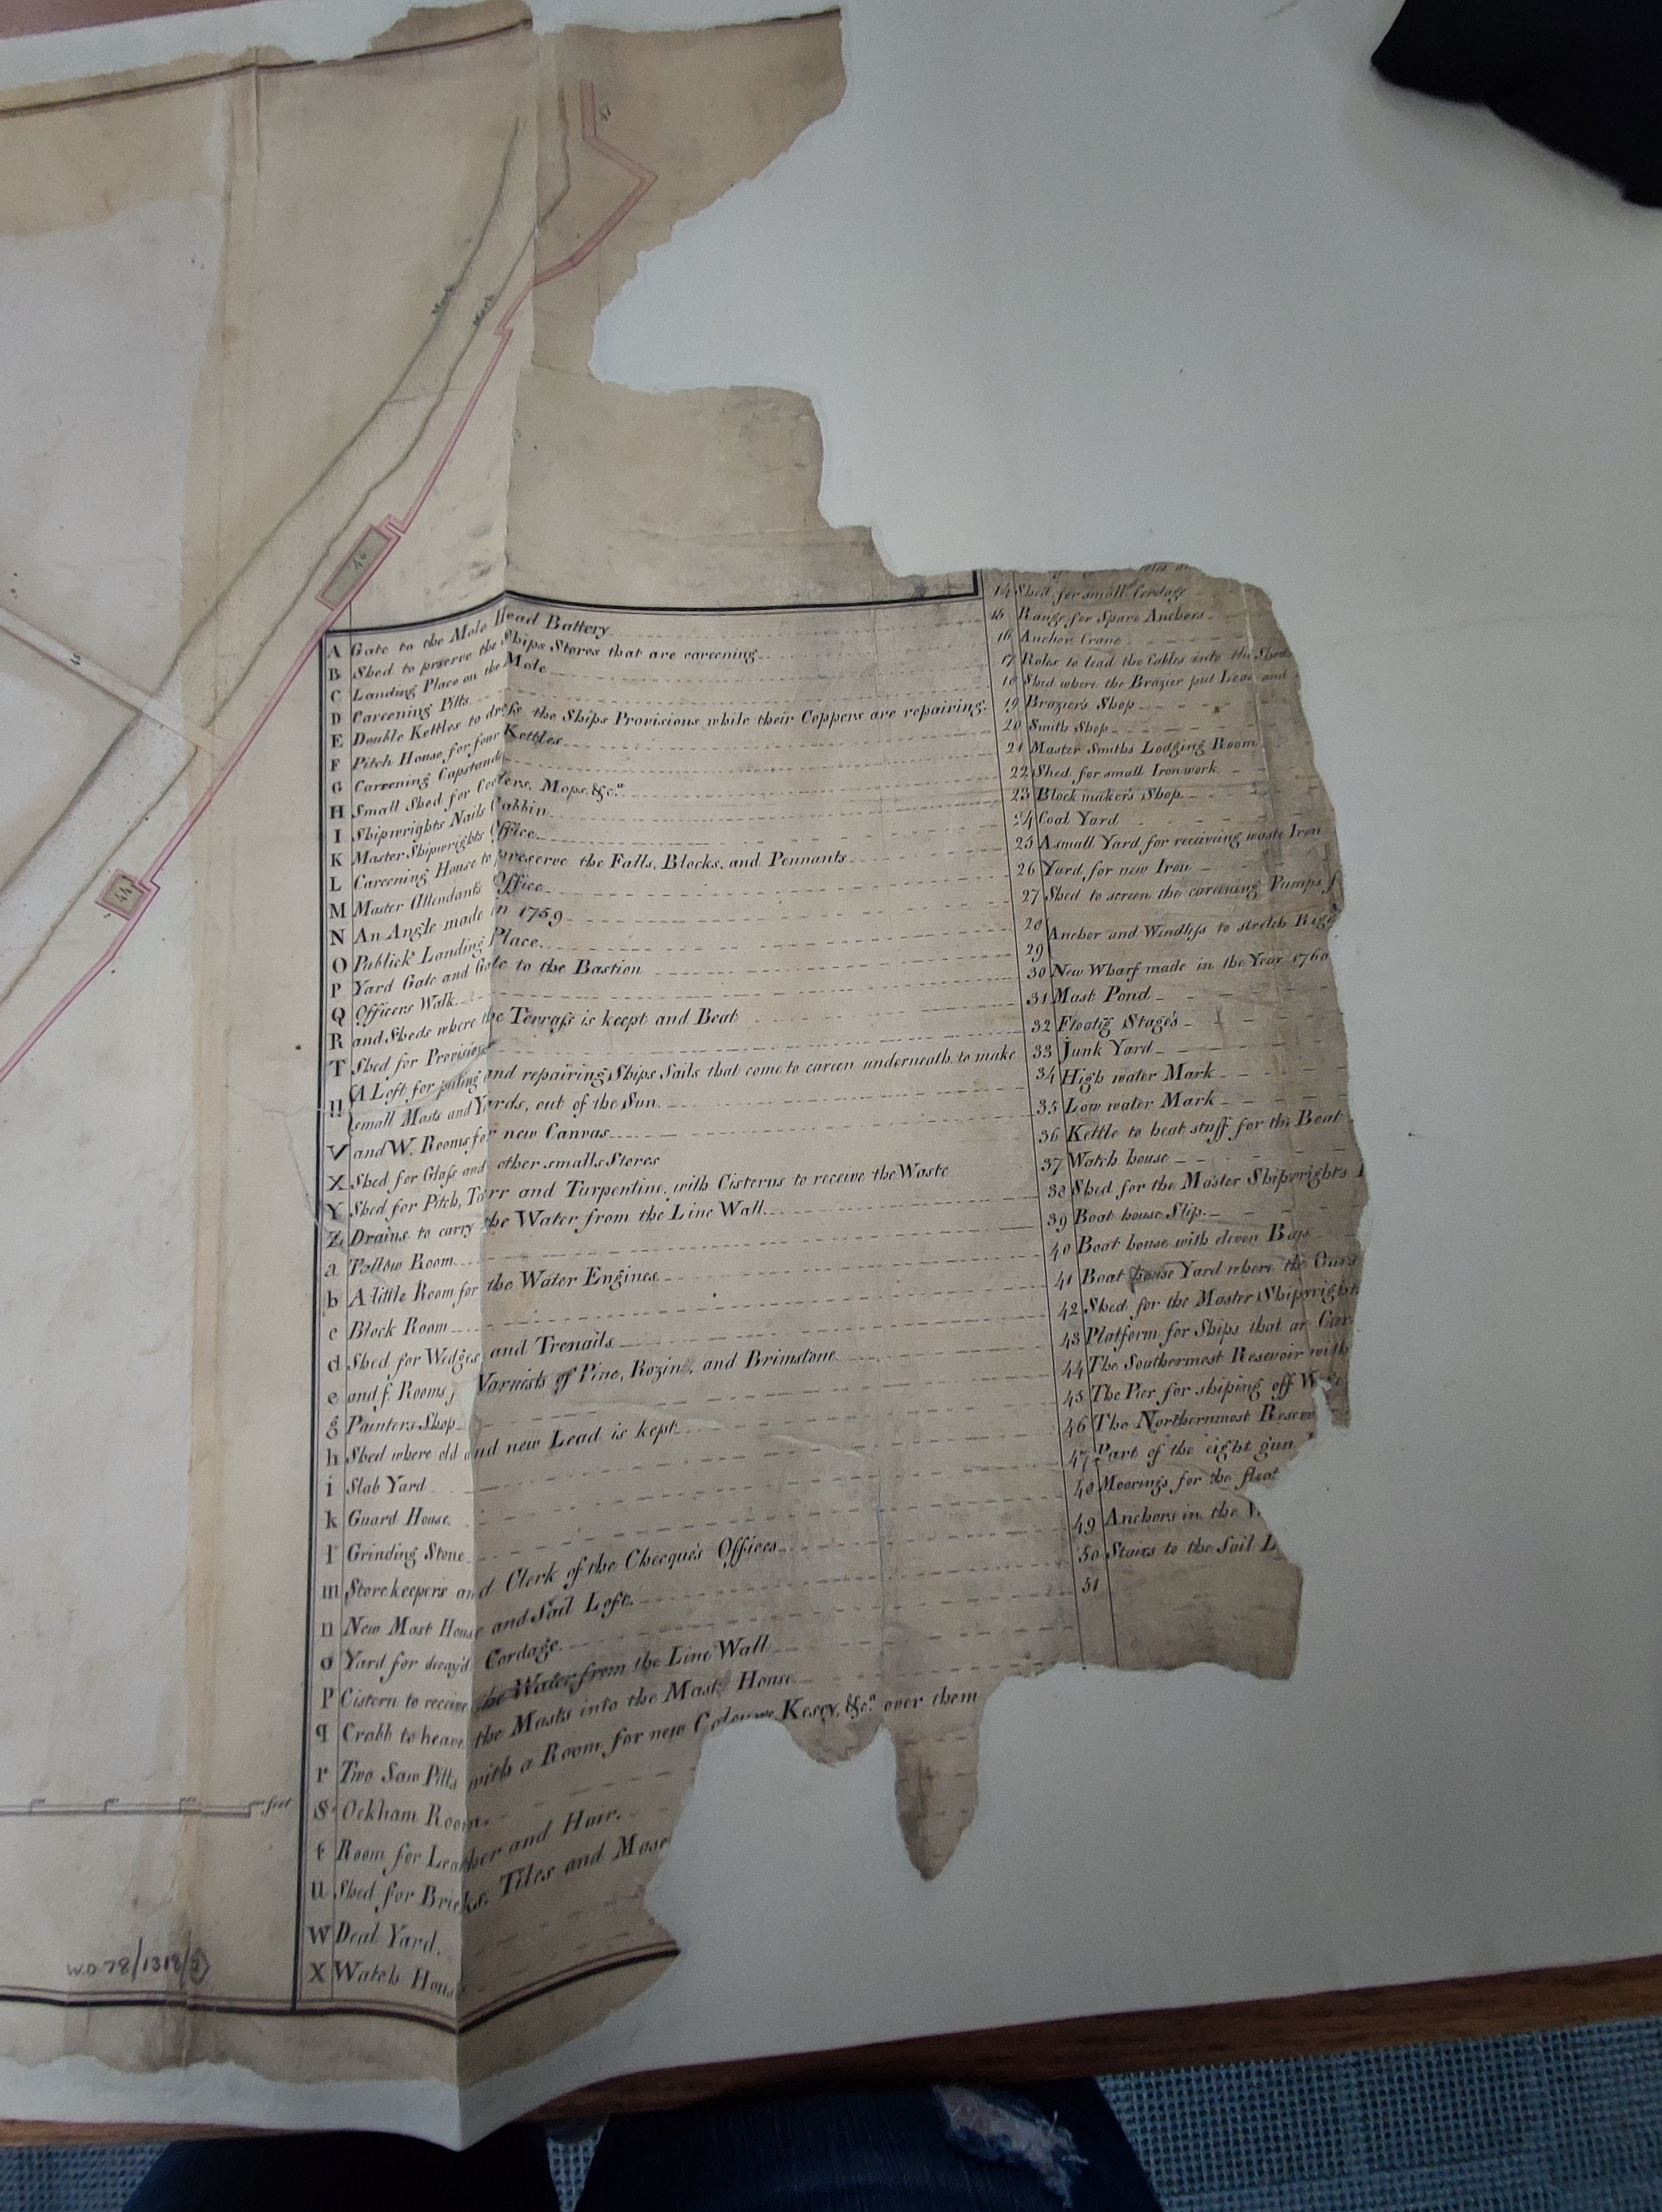 Mark
Mark
46
44
A Gate to the Mole Head Battery
B Shed to preserve the Ships Stores that are careening
C Landing Place on the Mole
D Careening Pitts
E Double Kettles to dress the Ships Provisions while their Coppers are repairing
F Pitch House for four Kettles
G Careening Capstands
H Small Shed for Coolers, Mops, &c.a
I Shipwrights Nails Cabbin
K Master Shipwrights Office
L Careening House to preserve the Falls, Blocks, and Pennants
M Master Attendants Office
N An Angle made in 1759
O Publick Landing Place
P Yard Gate and Gate to the Bastion
Q Officers Walk
R and Sheds where the Terrass is keept and Beat
T Shed for Provisions
U A Loft for puting and repairing Ships Sails that come to careen underneath to make
small Masts and Yards, out of the Sun
V and W. Rooms for new Canvas
X Shed for Glass and other smalls Stores
Y Shed for Pitch, Tarr and Turpentine, with Cisterns to receive the Waste
Z Drains to carry the Water from the Line Wall
a Tallow Room
b A little Room for the Water Engines
c Block Room
d Shed for Wedges and Trenails
e and f. Rooms Varnists of Pine, Rozin, and Brimstone
g Painters Shop
h Shed where old and new Lead is kept
i Slab Yard
k Guard House
l Grinding Stone
m Storekeepers and Clerk of the Checque's Offices
n New Mast House and Sail Loft
o Yard for decay'd Cordage
p Cistern to receive the Water from the Line Wall
q Crabb to heave the Masts into the Mast House
r Two Saw Pitts with a Room for new Kersey, &c.a over them
s Ockham Room
t Room for Leather and Hair
u Shed for Bricks, Tiles and
w Deal Yard
x Watch House
14 Shed for small Cordage
15 Range for Spare Anchors
16 Anchor Crane
17 Roles to lead the Cables into the Sheds
18 Shed where the Brazier put Lead and
19 Brazier's Shop
20 Smith Shop
21 Master Smiths Lodging Room
22 Shed for small Ironwork
23 Blockmaker's Shop
24 Coal Yard
25 A small Yard for receiving waste Iron
26 Yard for new Iron
27 Shed to screen the careening Pumps f
28
29 Anchor and Windless to stretch Rigg
30 New Wharf made in the Year 1760
31 Mast Pond
32 Floatig Stages
33 Junk Yard
34 High water Mark
35 Low water Mark
36 Kettle to heat stuff for the Boat
37 Watch house
38 Shed for the Master Shipwrights
39 Boat house Slip
40 Boat house with eleven Bays
41 Boat house Yard where the
42 Shed for the Master Shipwright
43 Platform for Ships that ar
44 The Southermost Resevoir with
45 The Pier for shiping off
46 The Northernmost Reserv
47 Part of the eight gun
48 Moorings for the float
49 Anchors in the
50 Stairs to the Sail L
51
feet
W.O 78/1318/5